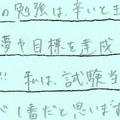 の勉強は、辛いと
夢や目標を達成
!! 私は、試験当
べし番だと思います